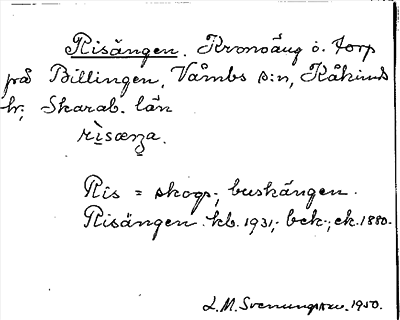 Risängen. Kronoäng o. torp
på Billingen, Våmbs s:n, Kåkinds
hr; Skarab. län
rìsæŋa.
Ris = skogs-, buskängen.
Risängen. kb. 1931,- bek-, ek. 1880.
L. M. Svenungsson. 1950.